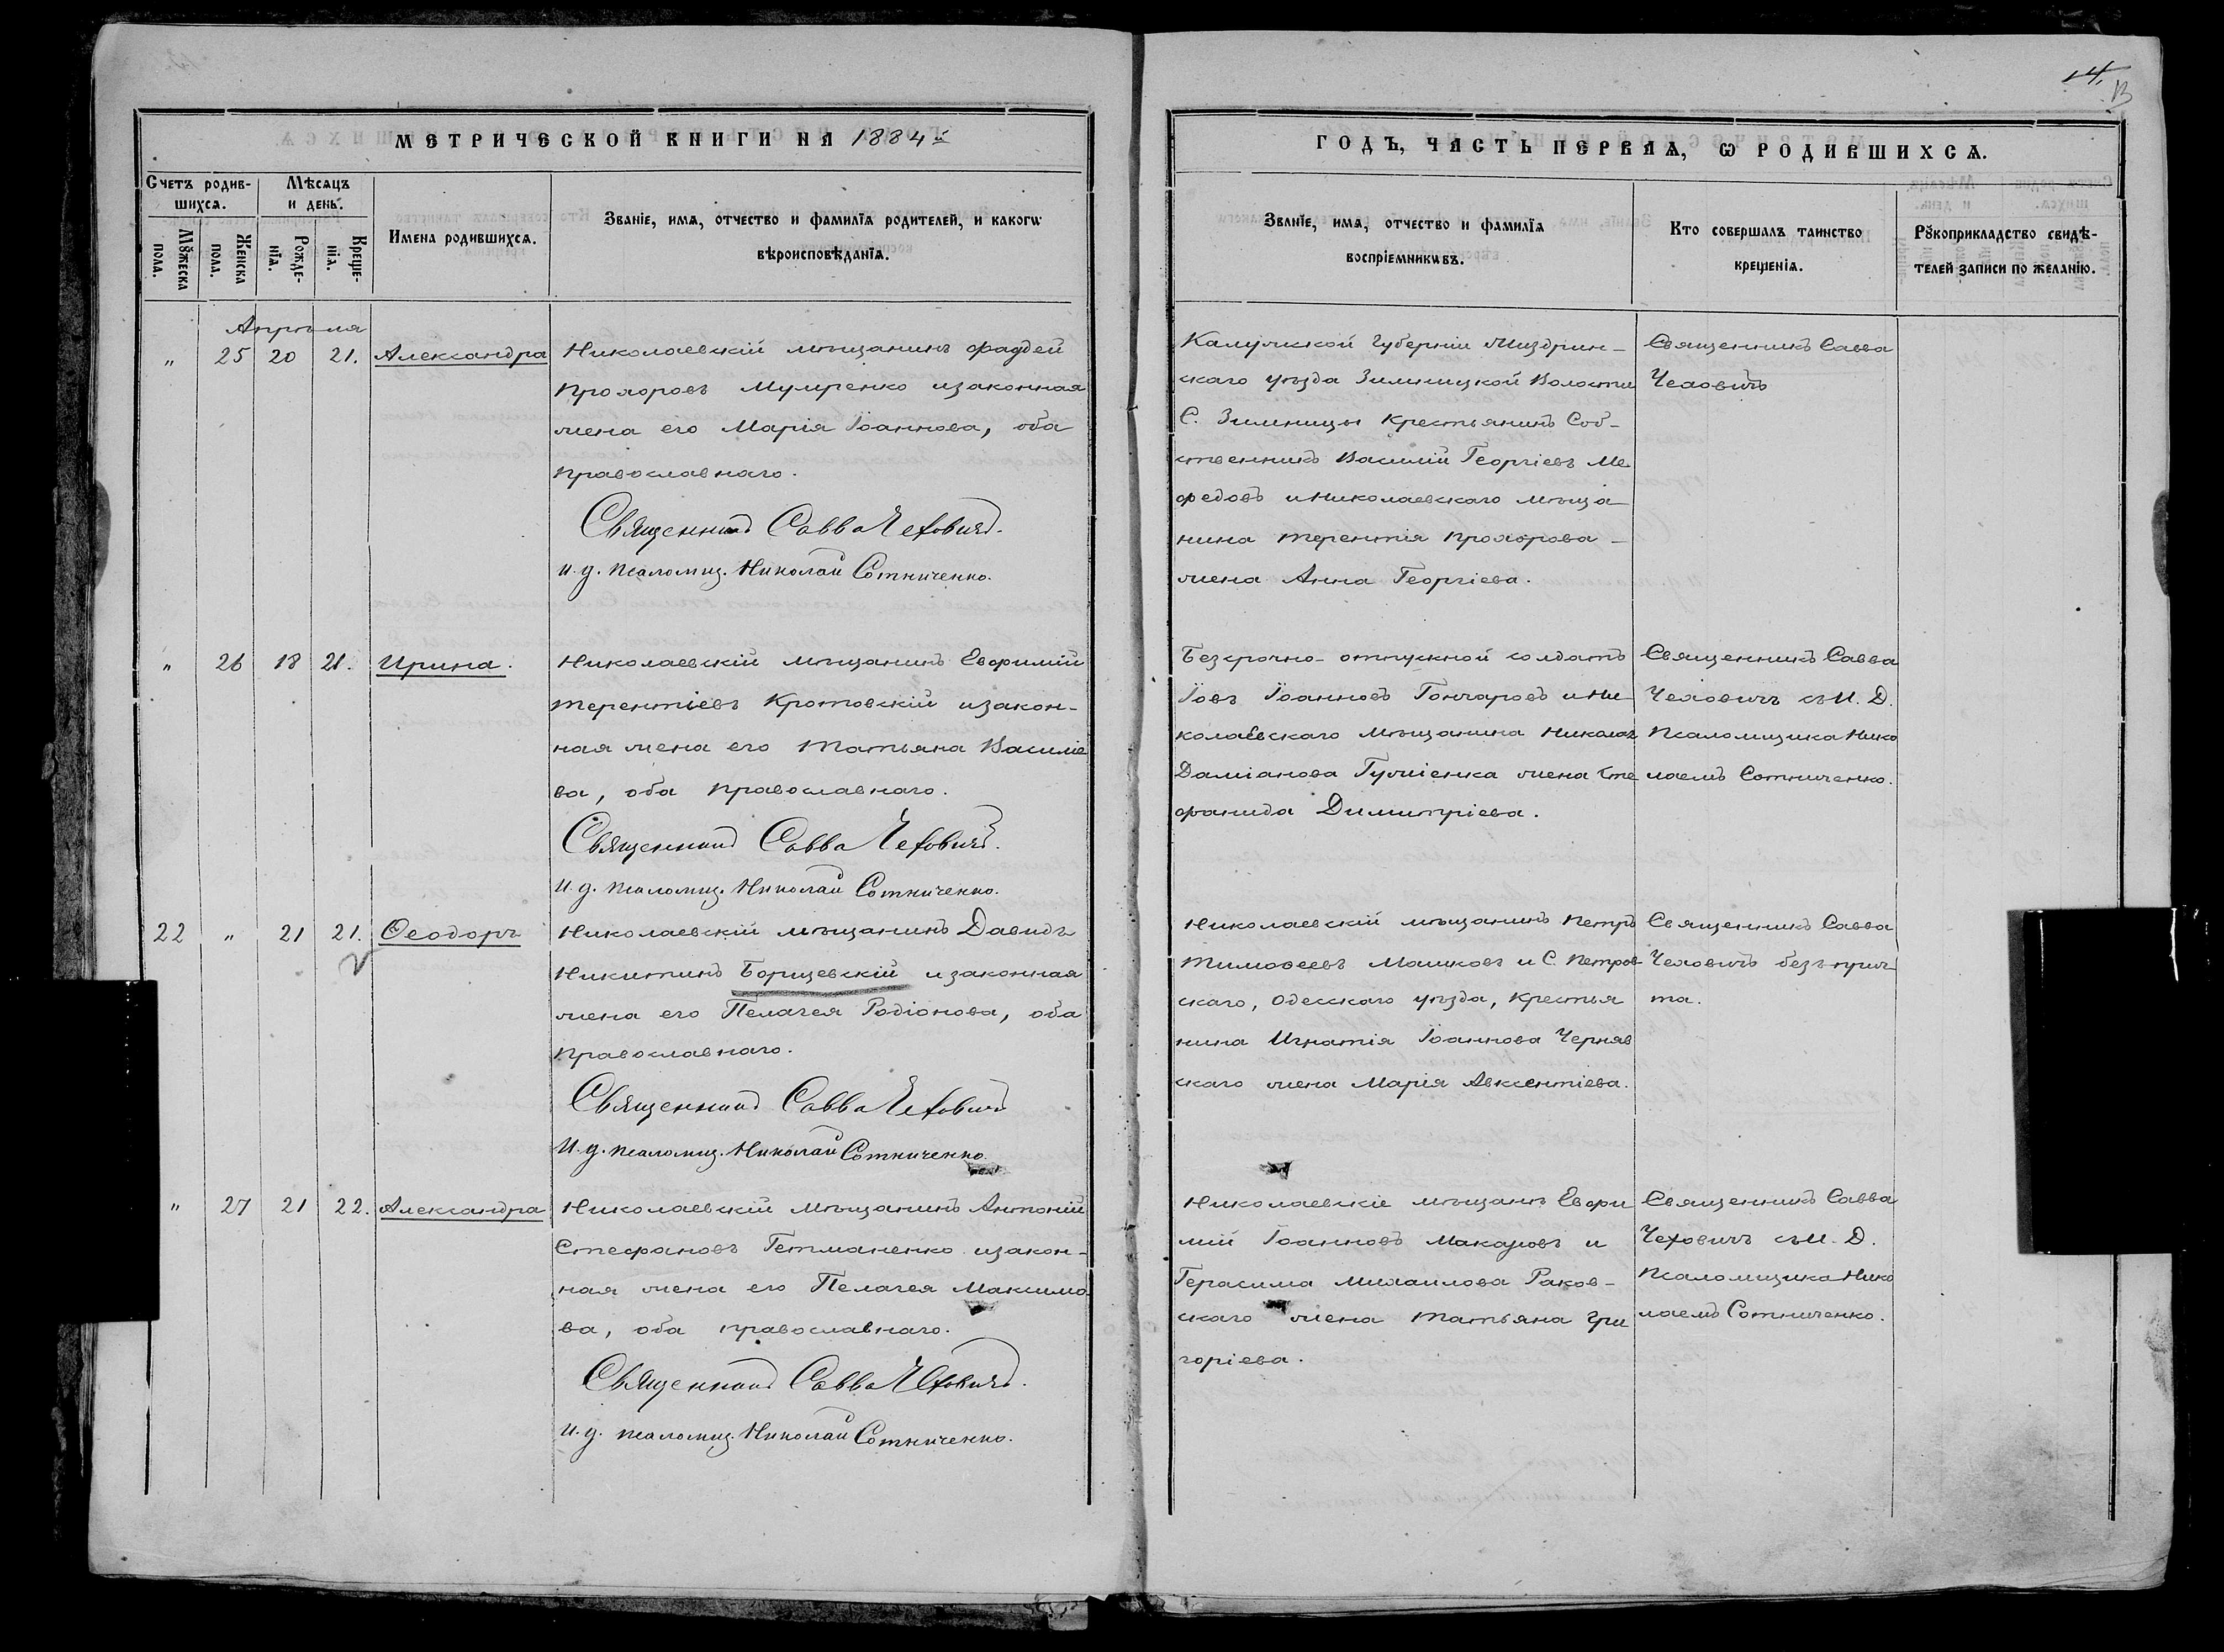 14.
13
МЕТРИЧЕСКОЙ КНИГИ НА 1884й
ГОДЪ, ЧАСТЬ ПЕРВАЯ, Ѡ РОДИВШИХСѦ.
Счетъ родив-
шихсѧ.
Мѣсяцъ
и день.
Мꙋжеска
пола.
Женска
пола.
Рожде-
нїѧ.
Креще-
нїѧ.
Имена родившихсѧ.
Званїе, имѧ, отчество и фамилїѧ родителей, и какогѡ
вѣроисповѣданїѧ.
Званїе, имѧ, отчество и фамилїѧ
воспрїемникѡвъ.
Кто совершалъ таинство
крещенїѧ.
Рꙋкоприкладство свидѣ-
телей записи по желанїю.
Апрѣля
„ 25 20 21. Александра
Николаевскій мѣщанинъ Фаддей
Прохоровъ Мумренко изаконная
жена его Марія Іоаннова, оба
православнаго.
Священникъ Савва Чехович.
И. д. псаломщ. Николай Сотниченко.
Калужской Губерніи Жиздрин-
скаго уѣзда Зимницкой Волости
С. Зимницы Крестьянинъ Соб-
ственникъ Василій Георгіевъ Ме
федовъ и Николаевскаго мѣща-
нина Терентія Прохорова -
жена Анна Георгіева.
Священникъ Савва
Чеховичъ
„ 26 18 21. Ирина.
Николаевскій мѣщанинъ Евфимій
Терентіевъ Кротовскій изакон-
ная жена его Татьяна Василіе
ва, оба православнаго.
Священникъ Савва Чеховичъ.
И. д. псаломщ. Николай Сотниченко.
Безсрочно-отпускной солдатъ
Іовъ Іоанновъ Гончаровъ и Ни-
колаевскаго мѣщанина Николая
Даміанова Гужіенка жена Сте
фанида Димитріева.
Священникъ Савва
Чеховичъ съ И. Д.
Псаломщика Нико
лаемъ Сотниченко.
22 „ 21 21. Ѳеодоръ
Николаевскій мѣщанинъ Давидъ
Никитинъ Борщевскій изаконная
жена его Пелагея Родіонова, оба
православнаго.
Священникъ Савва Чехович
И. д. псаломщ. Николай Сотниченко.
Николаевскій мѣщанинъ Петръ
Тимоѳеевъ Машковъ и С. Петров
скаго, Одесскаго уѣзда, Крестья
нина Игнатія Іоаннова Черняв
скаго жена Марія Авксентіева.
Священникъ Савва
Чеховичъ безъ прич-
та.
„ 27 21 22. Александра
Николаевскій мѣщанинъ Антоній
Стефановъ Гетманенко изакон-
ная жена его Пелагея Максимо
ва, оба православнаго.
Священникъ Савва Чеховичъ.
И. д. псаломщ. Николай Сотниченко.
Николаевскіе мѣщанъ Евфи
мій Іоанновъ Макаровъ и
Герасима Михаилова Раков-
скаго жена Татьяна Гри
горіева.
Священникъ Савва
Чеховичъ съ И. Д.
Псаломщика Нико
лаемъ Сотниченко.